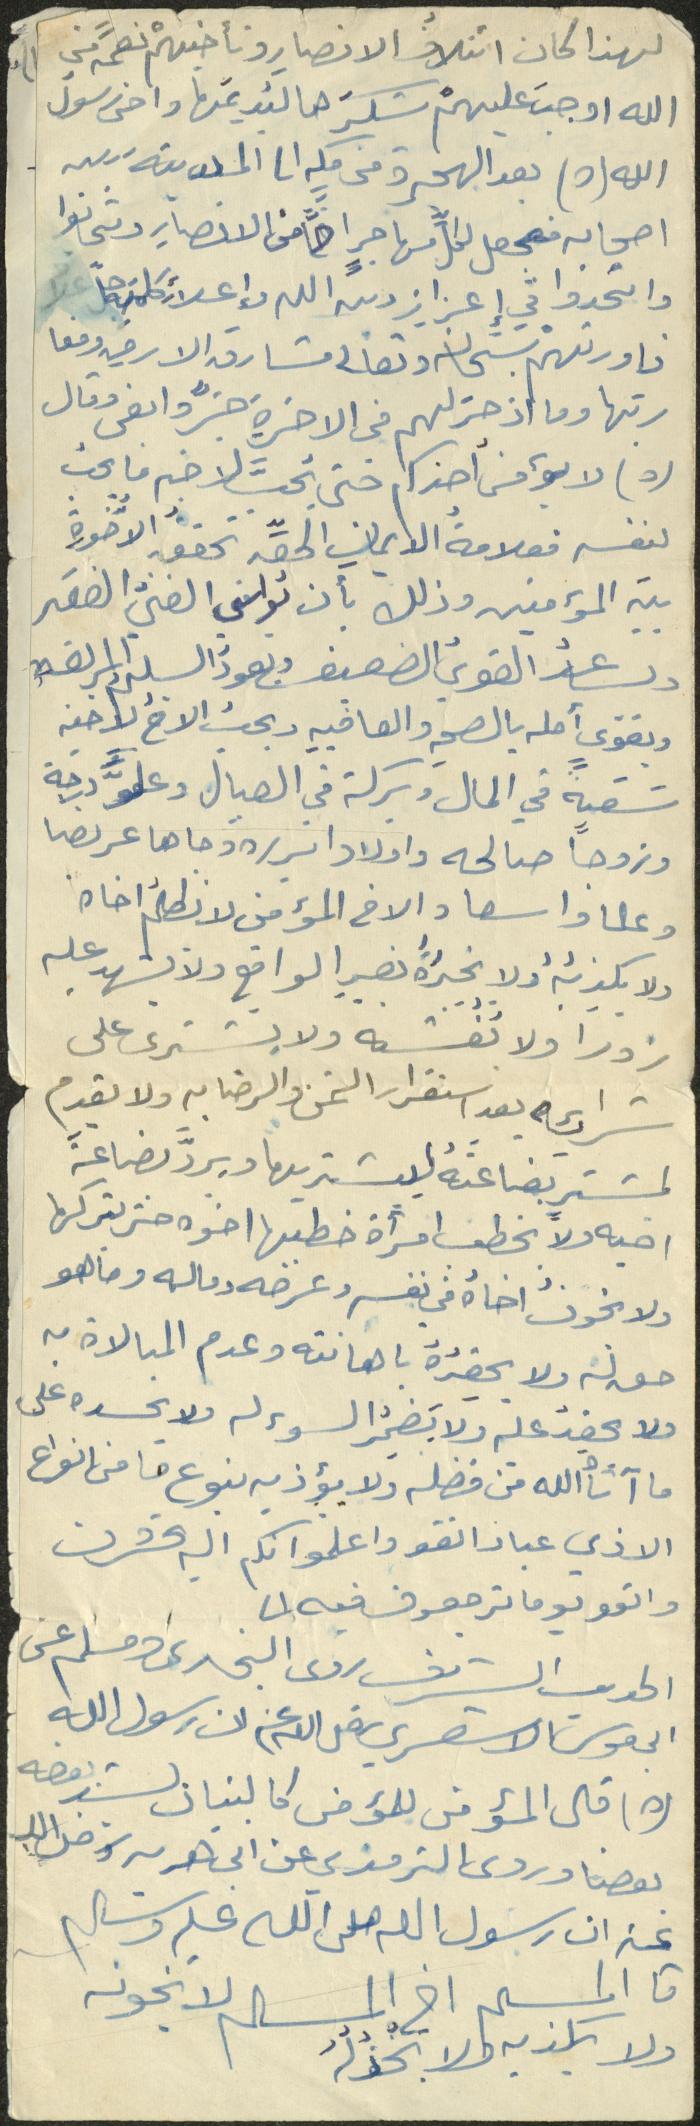 لهذا كان ائتلاف الانصار وتأخيهم نعمة من
الله اوجب عليهم شكرها ليديمها واخى رسول
الله (ص) بعد الهجرة من مكه الى المدينه بين
اصحابه فجعل لكل مهاجر اخاً من الانصار وتحابوا
واتحدوا في إعزاز دين الله وإعلاء كلمته
فاورثهم سبحانه وتعالى مشارق الارض ومغا
ربها وما اذخر لهم في الاخرة خيرٌ وابقى وقال
(ص) لا يؤمن أحدكم حتى يحبَّ لاخيه ما يحب
لنفسه فعلامة الايمان الحقه تحقق الأخوة
بين المؤمنين وذلك بأن يواسي الغني الفقير
ويساعد القوي الضعيف ويعود السليم المريض
ويقوي أمله بالصحه والعافيه ويحب الاخ لاخيه
سعةً في المال وبركة في العيال وعلوَّ درجة
وزوجاً صالحه واولادا برره وجاها عريضا
وعلما واسعا والاخ المؤمن لا يظلم اخاه
ولا يكذبه ولا يخبرهُ بغير الواقع ولا يشهد عليه
زوراً ولا يغشه ولا يشتري على
شرائه بعد استقرار الثمن والرضا به ولا يقدم
لمشتر بضاعته ليشتريها ويردَّ بضاعة
اخيه ولا يخطب امرأة خطبها اخوه حتى يتركها
ولا يخون أخاهُ في نفسه وعرضه وماله وما هو
حق له ولا يحقرهُ باهانته وعدم المبالاة به
ولا يحقد عليه ولا يضمر السوء له ولا يحسده على
ما آتاه الله من فضله ولا يؤذيه بنوع ما من انواع
الاذي عباد اتقو واعلموا انكم اليه تحشرون
واتقو يوما ترجعون فيه
الحديث الشريف روى البخاري ومسلم عن
ابي موسى الاشعري رضي الله عنه ان رسول الله
(ص) قال المؤمن للمؤمن كالبنيان يشد بعضه
بعضا وروى الترمذي عن ابي هريره رضى الله
عنه ان رسول الله صلى الله عليه وسلم
قا المسلم اخ المسلم لا يخونه
ولا يكذبه ولا يخذلهُ